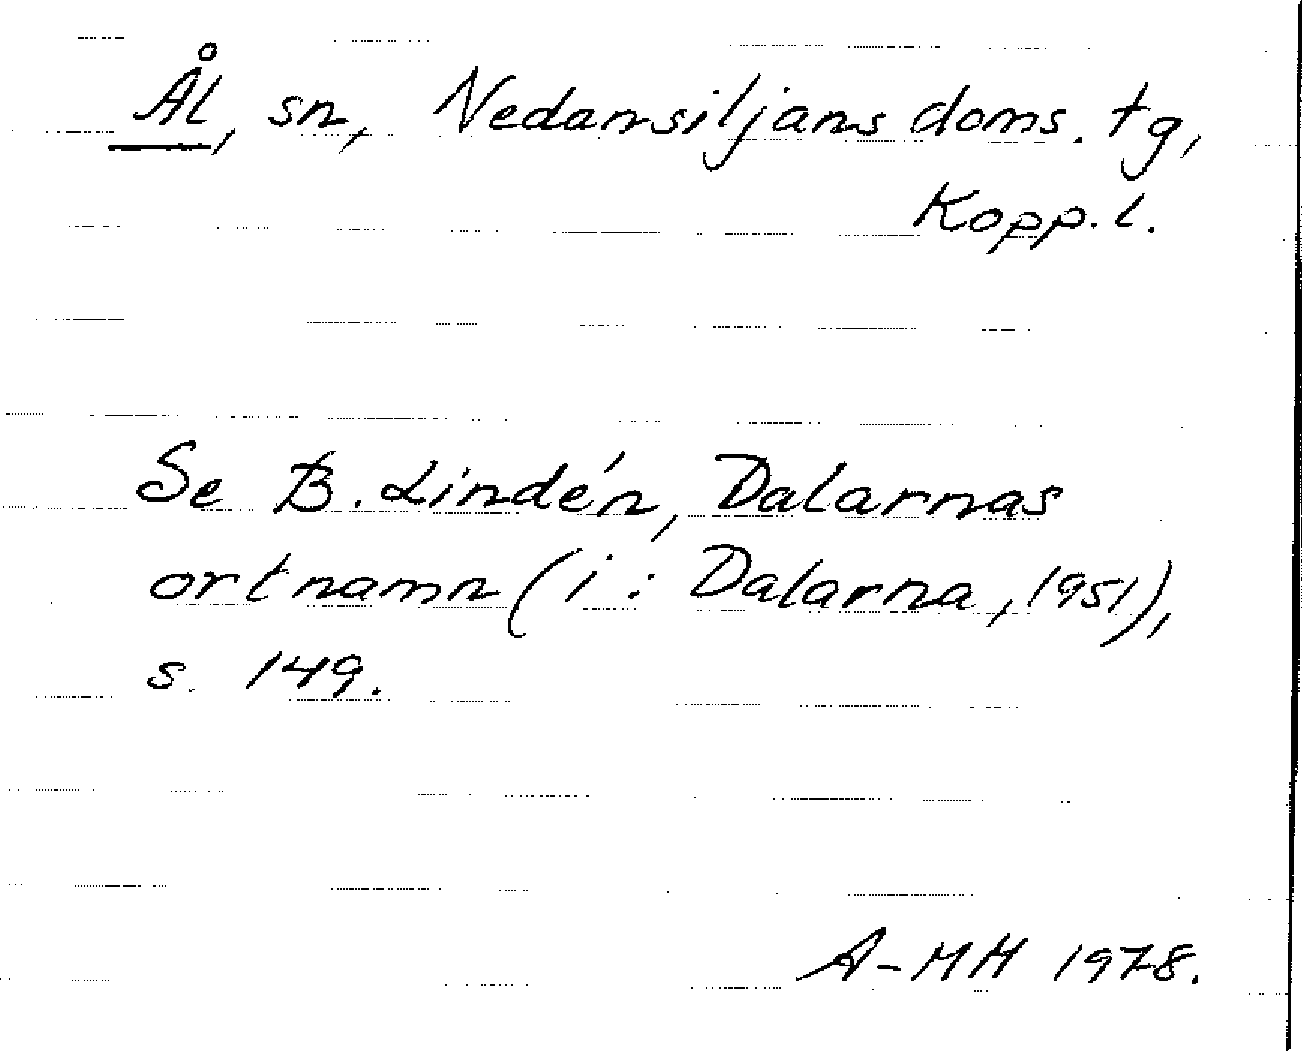 Ål, sn, Nedansiljans doms. tg,
Kopp. l.
Se B. Lindén, Dalarnas
ortnamn (i: Dalarna, 1951),
s. 149.
A-MH 1978.